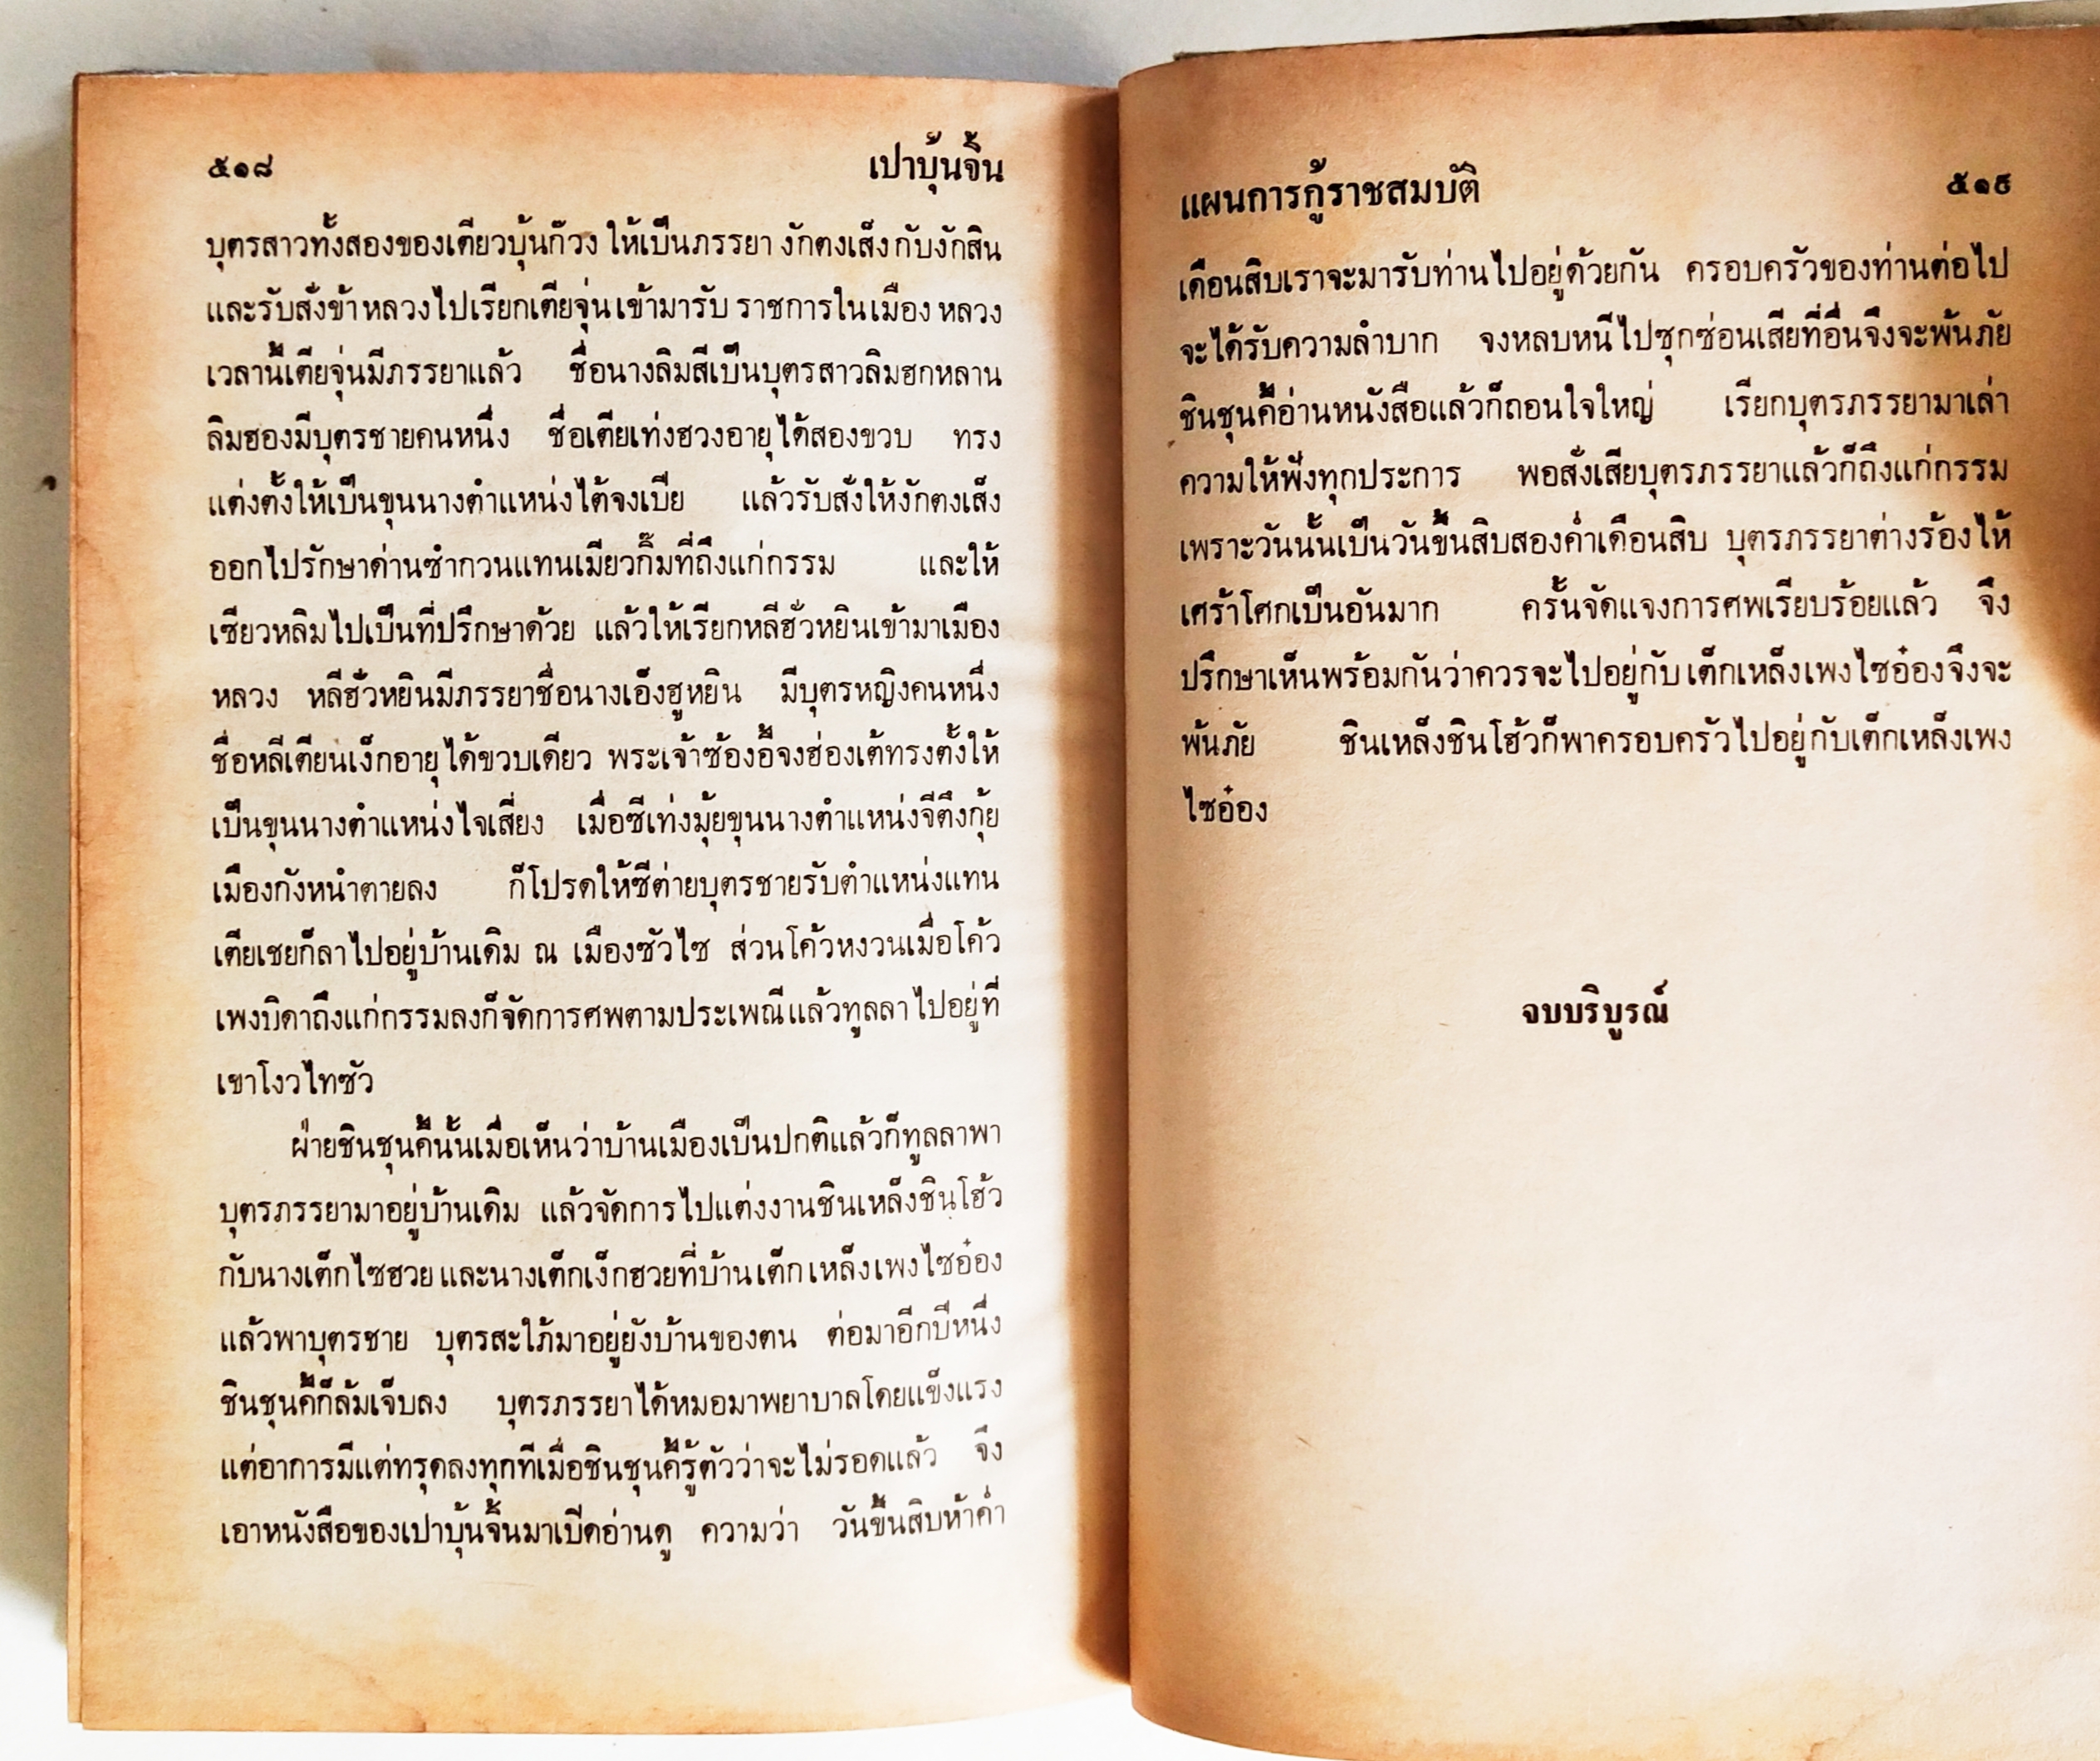 ๕๑๘ เปาบุ้นจิ้น
บุตรสาวทั้งสองของเตียวบุ้นก๊วง ให้เป็นภรรยา งักตงเส็ง กับงักสิน
และรับสั่งข้าหลวงไปเรียกเตียจุ่นเข้ามารับ ราชการในเมือง หลวง
เวลานี้เตียจุ่นมีภรรยาแล้ว ชื่อนางลิมสีเป็นบุตรสาวลิมฮกหลาน
ลิมฮองมีบุตรชายคนหนึ่ง ชื่อเตียเท่งฮวงอายุได้สองขวบ ทรง
แต่งตั้งให้เป็นขุนนางตำแหน่งไต้จงเบีย แล้วรับสั่งให้งักตงเส็ง
ออกไปรักษาด่านซำกวนแทนเมียวกิ๊มที่ถึงแก่กรรม และให้
เซียวหลิมไปเป็นที่ปรึกษาด้วย แล้วให้เรียกหลีฮั่วหยินเข้ามาเมือง
หลวง หลีฮั่วหยินมีภรรยาชื่อนางเอ็งฮูหยิน มีบุตรหญิงคนหนึ่ง
ชื่อหลีเตียนเง็กอายุได้ขวบเดียว พระเจ้าซ้องอี้จงฮ่องเต้ทรงตั้งให้
เป็นขุนนางตำแหน่งไจเสี่ยง เมื่อซีเท่งมุ้ยขุนนางตำแหน่งจีตึงกุ้ย
เมืองกังหนำตายลง ก็โปรดให้ซีต่ายบุตรชายรับตำแหน่งแทน
เตียเชยก็ลาไปอยู่บ้านเดิม ณ เมืองซัวไซ ส่วนโค้วหงวนเมื่อโค้ว
เพงบิดาถึงแก่กรรมลงก็จัดการศพตามประเพณีแล้วทูลลาไปอยู่ที่
เขาโงวไทซัว
ฝ่ายชินชุนคี้นั้นเมื่อเห็นว่าบ้านเมืองเป็นปกติแล้วก็ทูลลาพา
บุตรภรรยามาอยู่บ้านเดิม แล้วจัดการไปแต่งงานชินเหล็งชินโฮ้ว
กับนางเต็กไซฮวย และนางเต็กเง็กฮวยที่บ้านเต็กเหล็งเพงไซอ๋อง
แล้วพาบุตรชาย บุตรสะใภ้มาอยู่ยังบ้านของตน ต่อมาอีกปีหนึ่ง
ชินชุนคี้ก็ล้มเจ็บลง บุตรภรรยาได้หมอมาพยาบาลโดยแข็งแรง
แต่อาการมีแต่ทรุดลงทุกทีเมื่อชินชุนคี้รู้ตัวว่าจะไม่รอดแล้ว จึง
เอาหนังสือของเปาบุ้นจิ้นมาเปิดอ่านดู ความว่า วันขึ้นสิบห้าค่ำ
แผนการกู้ราชสมบัติ ๕๑๙
เดือนสิบเราจะมารับท่านไปอยู่ด้วยกัน ครอบครัวของท่านต่อไป
จะได้รับความลำบาก จงหลบหนีไปซุกซ่อนเสียที่อื่นจึงจะพ้นภัย
ชินชุนคี้อ่านหนังสือแล้วก็ถอนใจใหญ่ เรียกบุตรภรรยามาเล่า
ความให้ฟังทุกประการ พอสั่งเสียบุตรภรรยาแล้วก็ถึงแก่กรรม
เพราะวันนั้นเป็นวันขึ้นสิบสองค่ำเดือนสิบ บุตรภรรยาต่างร้องไห้
เศร้าโศกเป็นอันมาก ครั้นจัดแจงการศพเรียบร้อยแล้ว จึง
ปรึกษาเห็นพร้อมกันว่าควรจะไปอยู่กับ เต็กเหล็งเพงไซอ๋องจึงจะ
พ้นภัย ชินเหล็งชินโฮ้วก็พาครอบครัวไปอยู่กับเต็กเหล็งเพง
ไซอ๋อง
จบบริบูรณ์